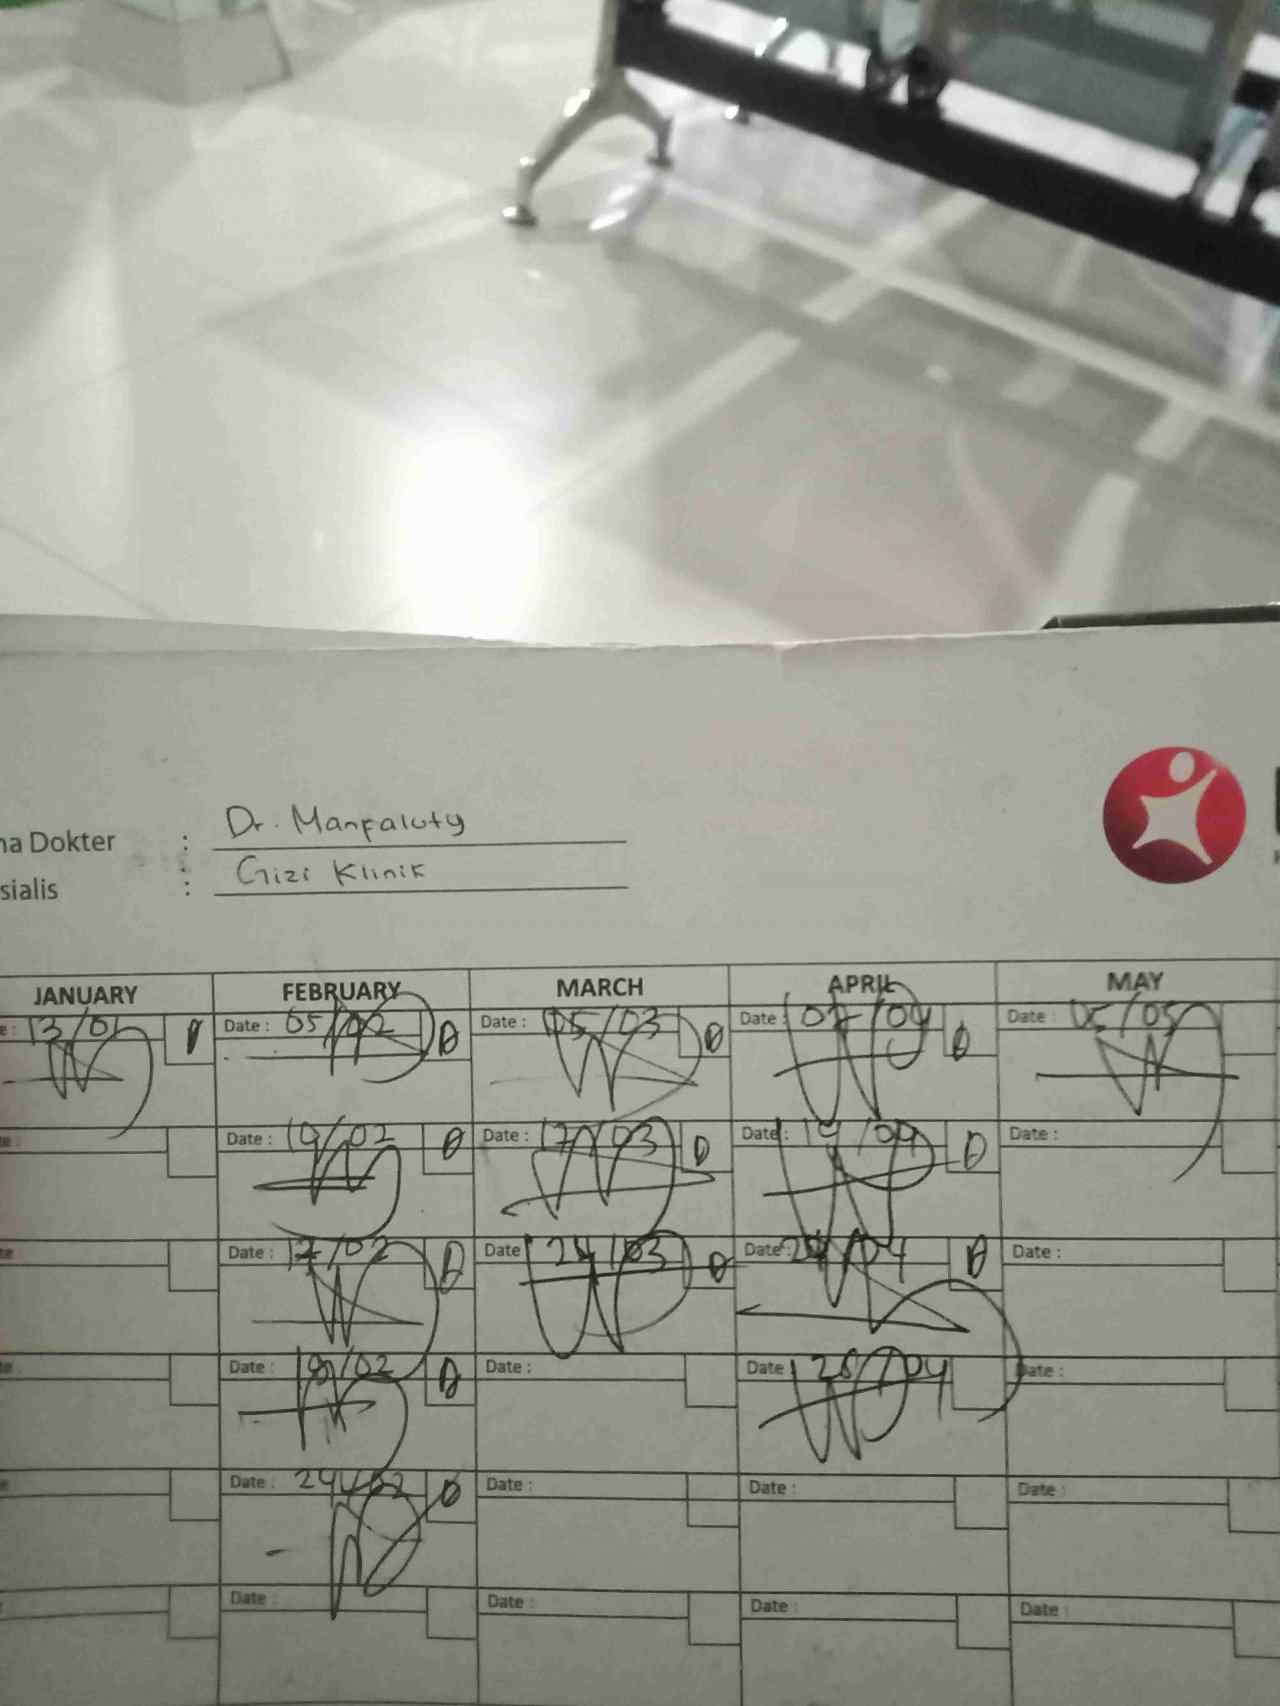 na Dokter : Dr. Manfaluty
sialis : Gizi Klinik
JANUARY FEBRUARY MARCH APRIL MAY
e : 13/01 Date : 05/02 Date : 05/03 Date : 07/04 Date : 05/05
te : Date : Date : 17/03 Date : 14/04 Date :
te Date : 17/02 Date 24/03 Date : Date :
te : Date : 18/02 Date : Date 28/04 Date :
e Date : 24/02 Date : Date : Date :
Date : Date : Date : Date :